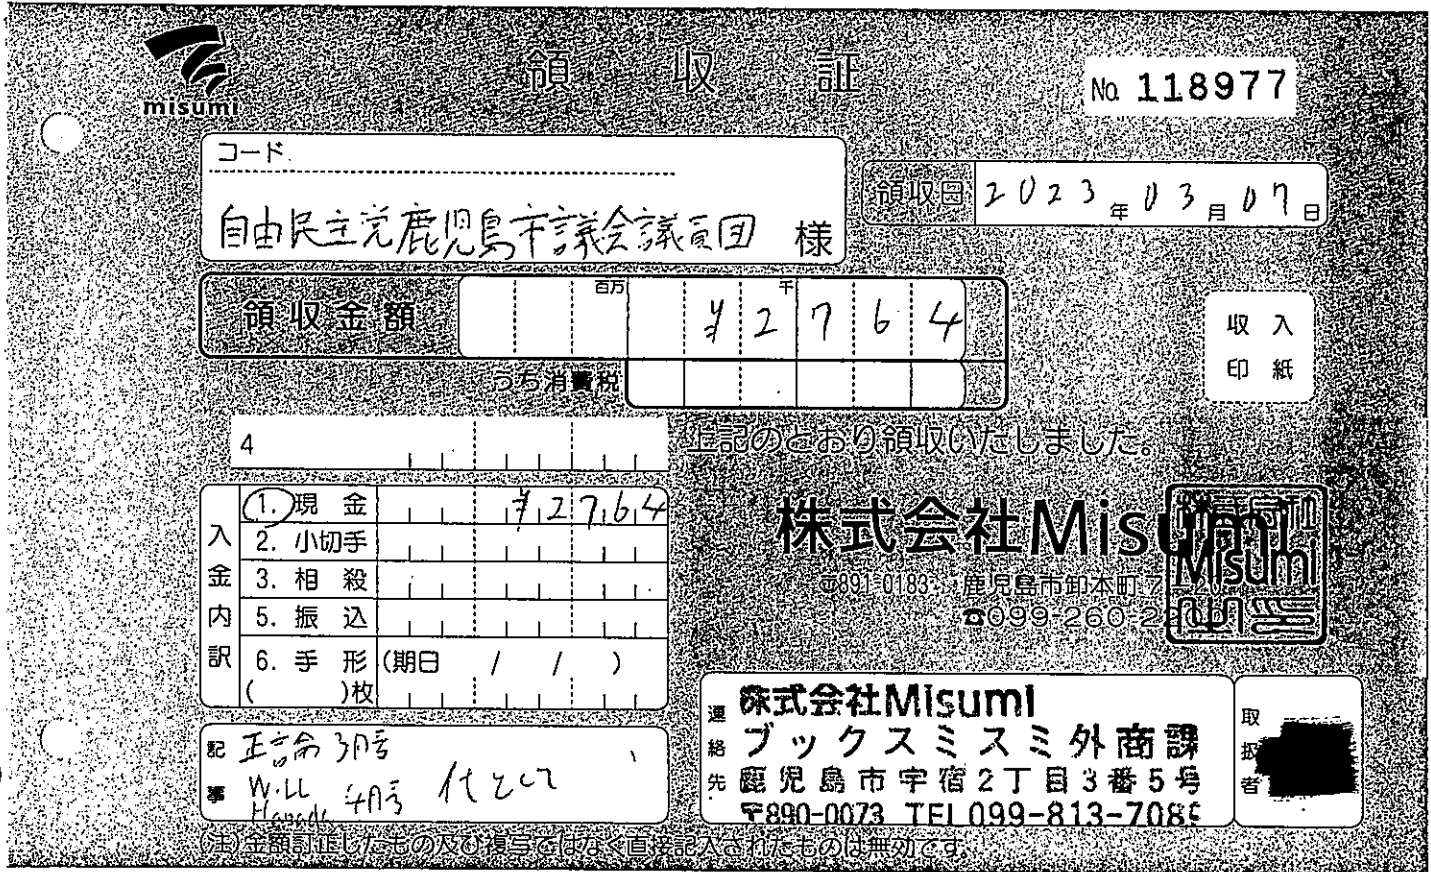 misumi
領収証
No. 118977
コード
自由民主党鹿児島市議会議員団 様
領収日 2023年03月07日
領収金額 百万 千 ¥2764
うち消費税
収入
印紙
4
上記のとおり領収いたしました。
入金内訳
1. 現金 ¥2764
2. 小切手
3. 相殺
5. 振込
6. 手形 (期日 / / )
( )枚
株式会社Misumi
〒891-0183 鹿児島市卸本町7
☎099-260-2
Misumi
記事
正論 3月号
WiLL 4月号 代として
Hanada
連絡先
株式会社Misumi
ブックスミスミ外商課
鹿児島市宇宿2丁目3番5号
〒890-0073 TEL099-813-708
取扱者
(注)金額訂正したもの及び複写ではなく直接記入されたものは無効です。